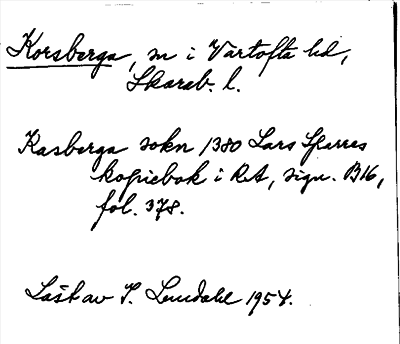 Korsberga, sn i Vartofta hd,
Skarab. l.
Kasberga sokn 1380 Lars Sparres
kopiebok i RA, sign. B16,
fol. 378.
Läst av I. Lundahl 1954.